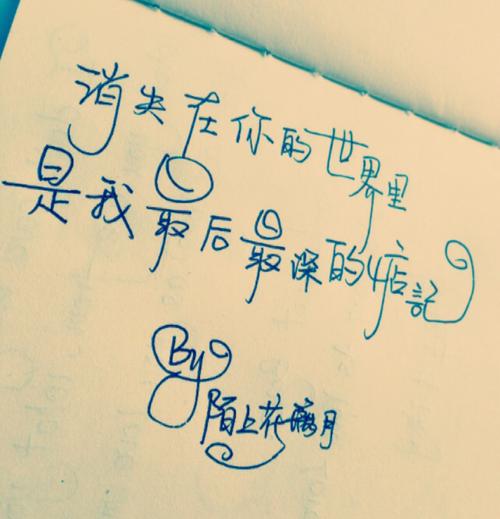 消失在你的世界里
是我最后最深的惦記
By
陌上花璃月